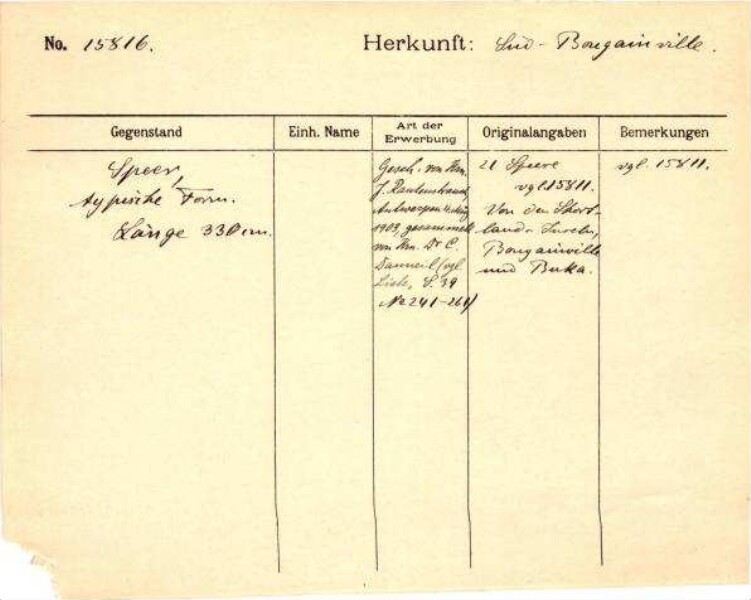 No. 15816.
Herkunft: Süd-Bougainville.
Gegenstand
Einh. Name
Art der Erwerbung
Originalangaben
Bemerkungen
Speer,
typische Form.
Länge 330 cm.
Gesch. von Hrn.
J. Rautenstrauch,
Antwerpen
1903, gesammelt
von Hrn. Dr C.
Danneil (vgl
Liste, S. 39
No 241-261)
21 Speere
vgl. 15811.
Von den Short-
land-Inseln,
Bougainville
und Buka.
vgl. 15811.